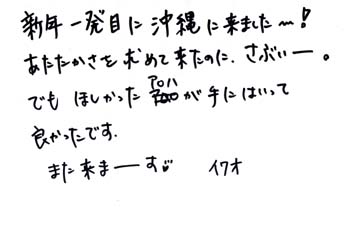 新年一発目に沖縄に来ました〜!
あたたかさを求めて来たのに、さぶいー。
でも ほしかった アロハが手にはいって
良かったです.
また来まーす♥ イワオ